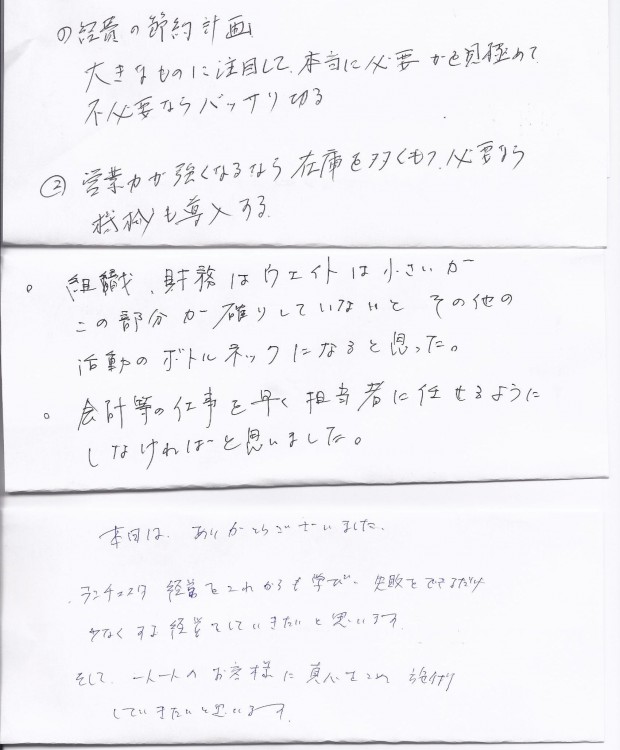 ①経費の節約計画
大きなものに注目して、本当に必要かを見極めて
不必要ならバッサリ切る
② 営業力が強くなるなら在庫を多くもつ、必要なら
機械も導入する。
。組織、財務はウェイトは小さいが
この部分が確りしていないと その他の
活動のボトルネックになると思った。
。会計等の仕事を早く担当者に任せるように
しなければと思いました。
本日は、ありがとうございました。
ランチェスタ 経営をこれからも学び、失敗をできるだけ
少なくする経営をしていきたいと思います。
そして、一人一人のお客様に真心をこめ
していきたいと思います。